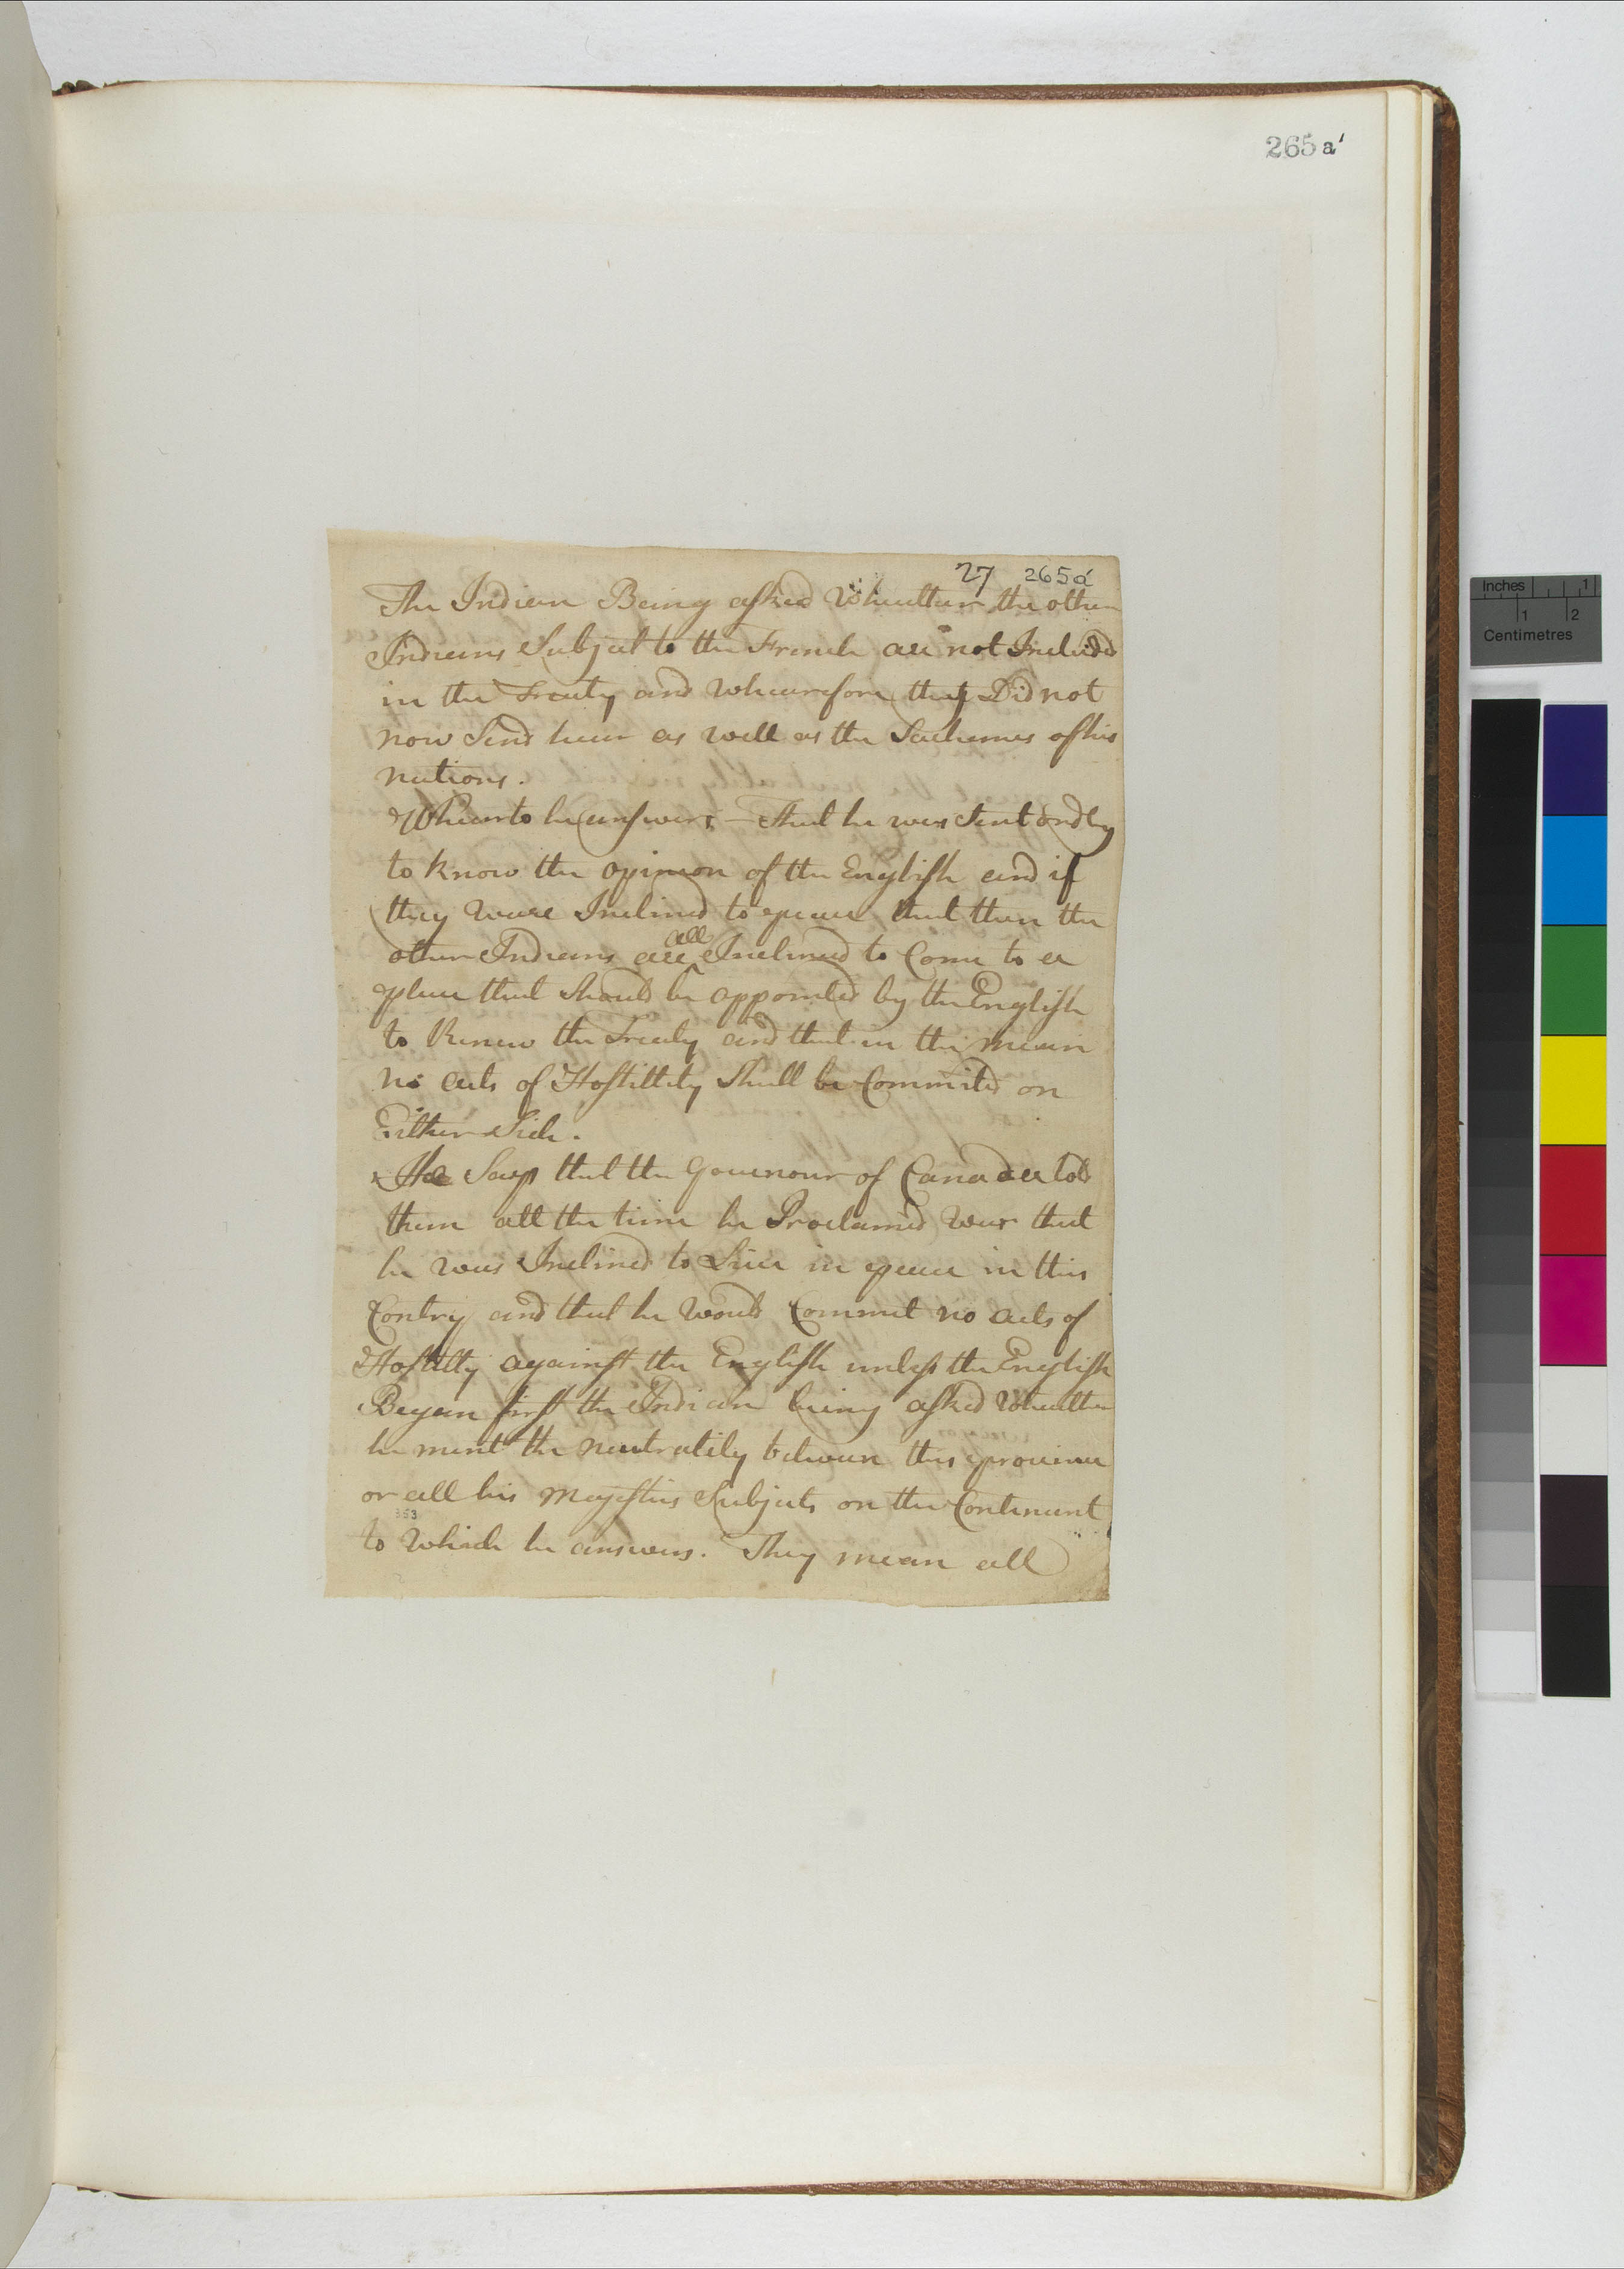 265 a'
27 265 a'
The Indian Being asked Wheather the other
Indians Subject to the French are not Included
in the Treaty and Whearefore they Did not
now Send hear as well as the Sachemes of his
nations.
Whearto he answers - That he was Sent only
to know the opinion of the English and if
they ware Inclined to peace that then the
all
other Indians are Inclined to Come to a
place that Should be appointed by the English
to Renew the Treaty and that in the mean
no acts of Hostillity Shall be Commited on
Either Side.
He Says that the Gouenour of Canada told
them all the time he Proclamed War that
he was Inclined to Liue in peace in this
Contry and that he Would Commit no acts of
Hostillty against the English unless the English
Began first the Indian being asked Wheather
he ment the neutrality betwean this prouince
or all his Majesties Subjects on the Continent
353
to Which he answers. They mean all
Inches 1
1 2
Centimetres